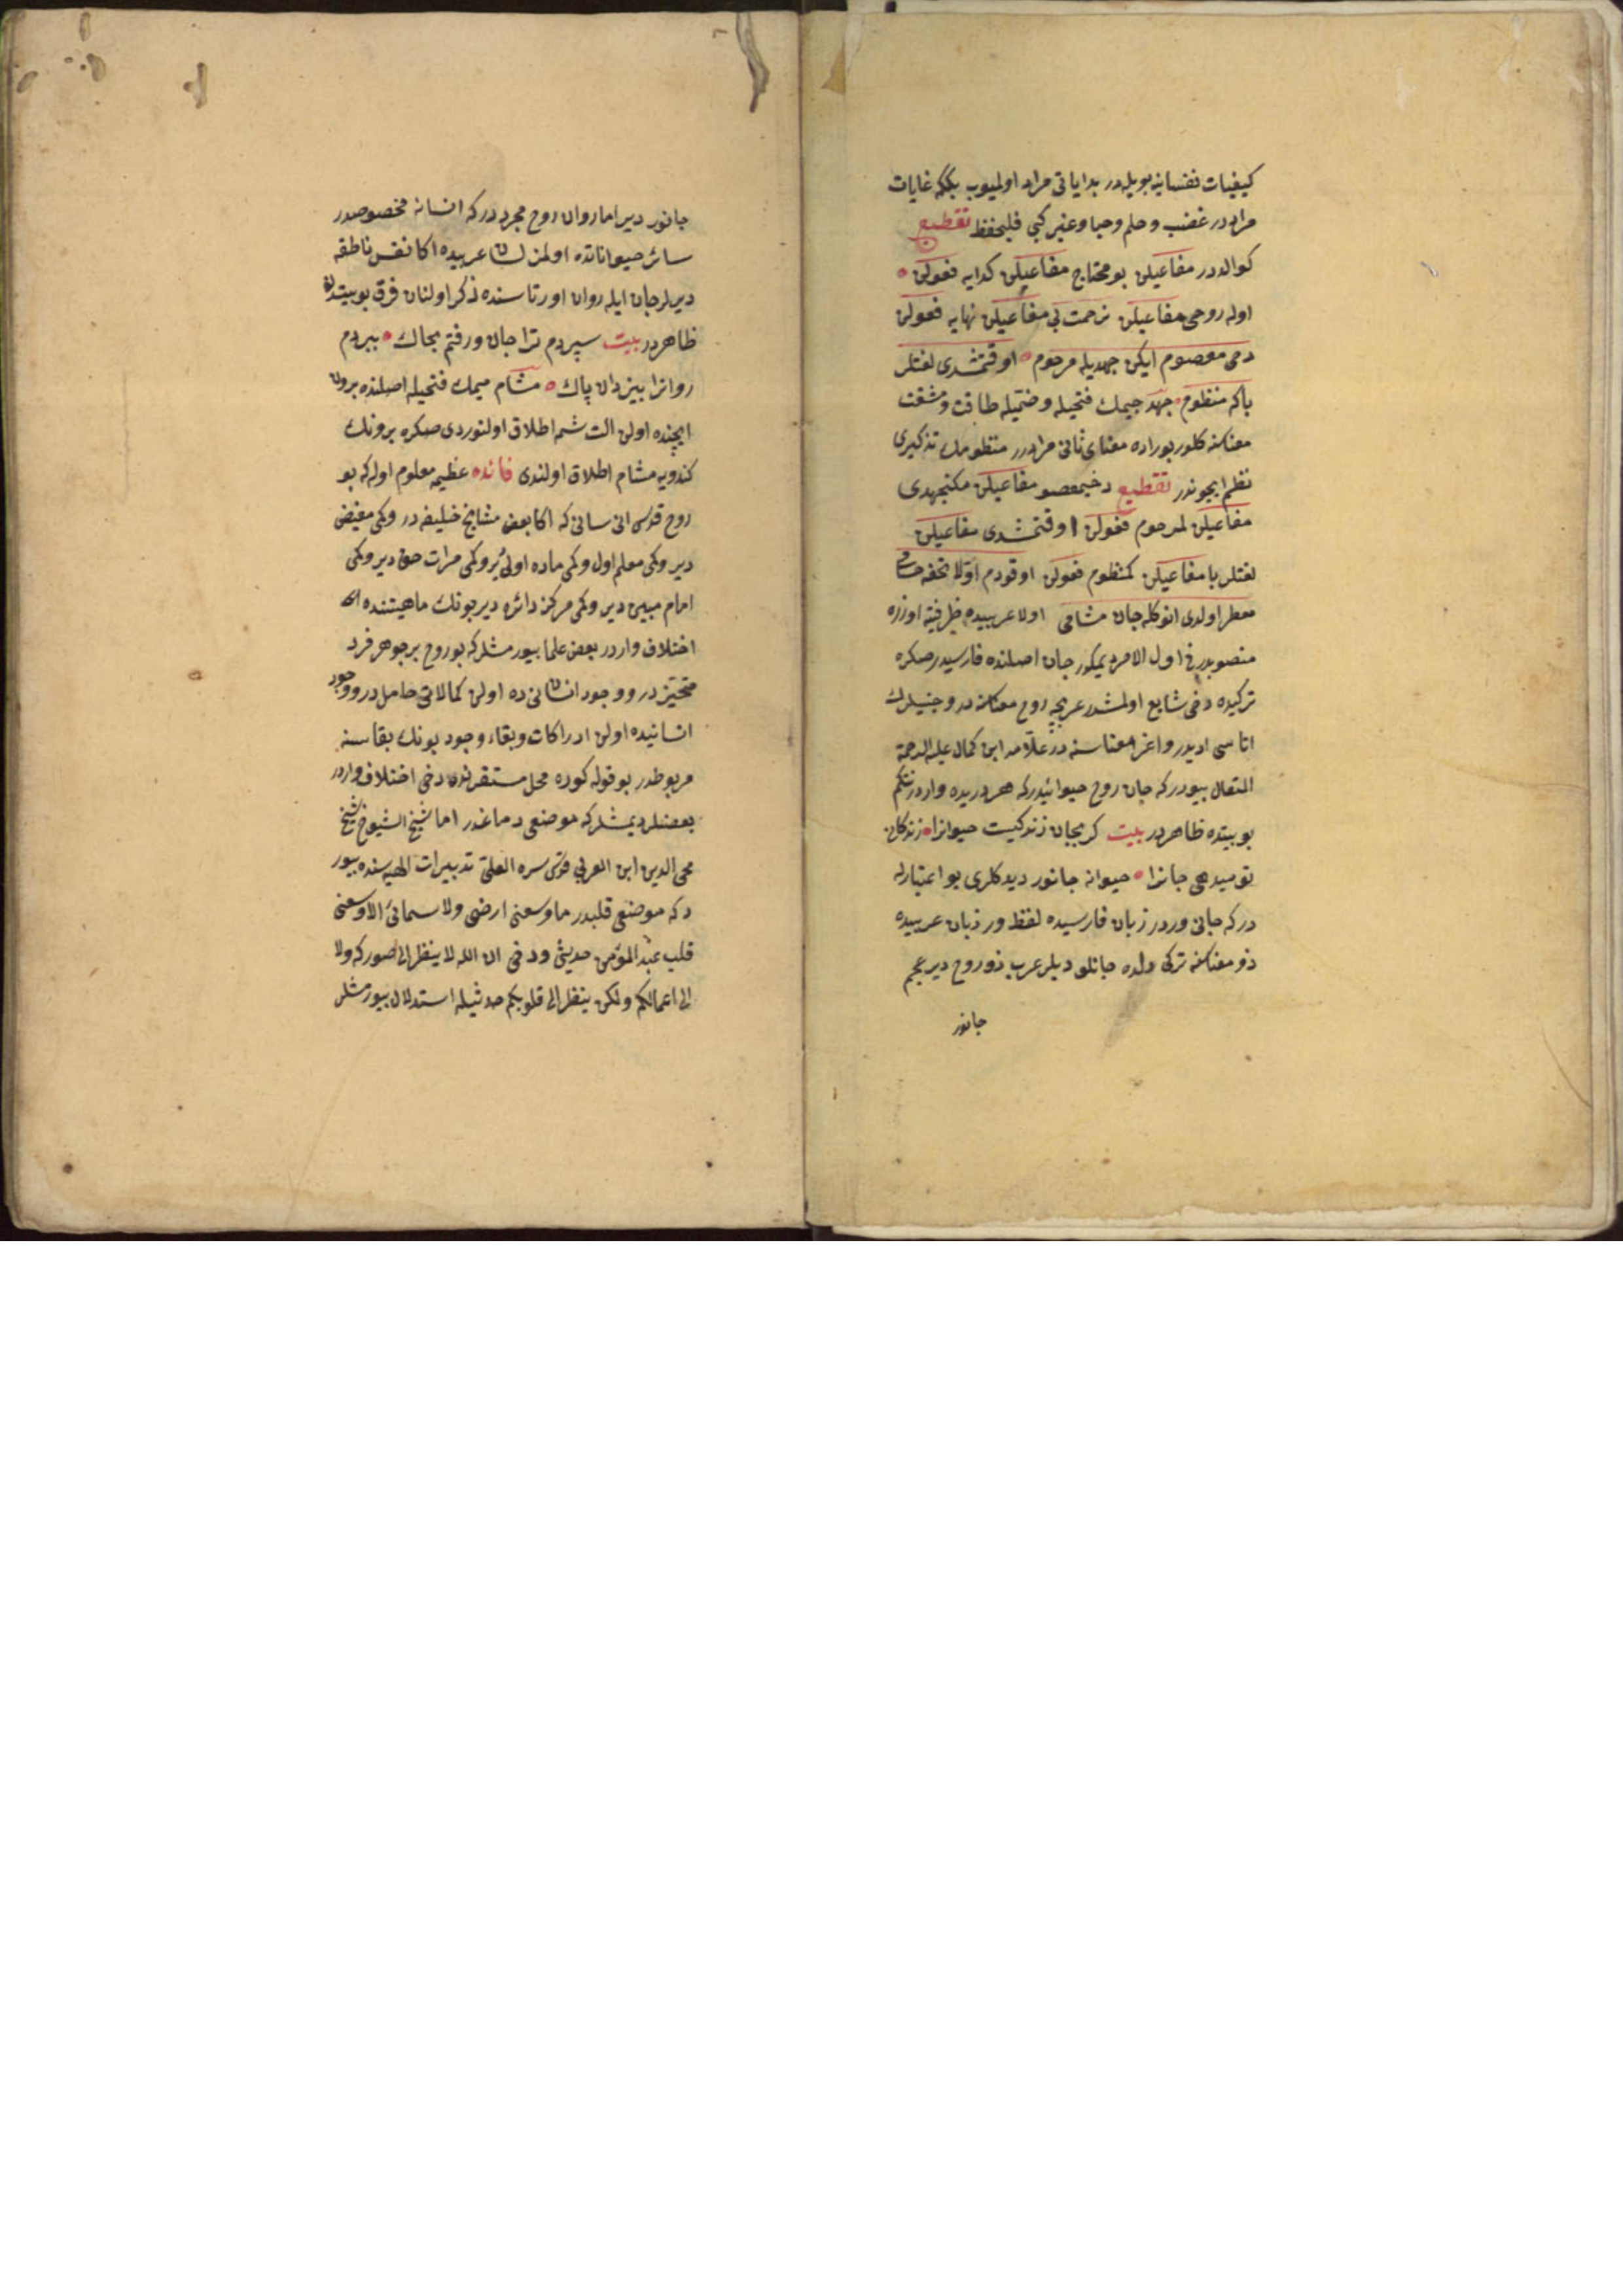 كيفيات نفسانيه بويله در بداياتى مراد اولميوب بلكه غايات
مراددر غضب و حلم و حيا و غير كبى فليحفظ تقطيع
كوالددر مفاعيلن بو محتاج مفاعيلن كدايه فعولن
اوله روحى مفاعيلن نرحمت بى مفاعيلن نهايه فعولن
دمى معصوم ايكن جهديله مرحوم اوقتمشدى لغتلر
باكه منظوم جهد جيمك فتحيله و ضميله طاقت و مشقت
معناسنه كلور بوراده معناى ثانى مراددر منظومك تذكيرى
نظم ايچوندر تقطيع دخيمعصو مفاعيلن مكنجهدى
مفاعيلن لمرحوم فعولن اوقتمشدى مفاعيلن
لغتلر با مفاعيلن كمنظوم فعولن اوقودم اولا تحفه حسامى
معطر اولدى انوكله جان مشامى اولا عربيده ظرفيته اوزره
منصوبدر فى اول الامر ديمكدر جان اصلنده فارسيدر صكره
تركيده دخى شايع اولمشدر عربجه روح معناسنه در و جنيلرك
اتاسى اديدر و اغز معناسنه در علامه ابن كمال عليه الرحمة
المتعال بيوردر كه جان روح حيوانيدر كه هر ديريده واردر نتكم
بو بيتده ظاهردر بيت كر بجان زندكيست حيوانرا زندكانى
تو ميدهى جانرا حيوانه جانور ديدكلرى بو اعتبارله
در كه جانى وردر زبان فارسيده لفظ ور زبان عربيده
ذو معناسنه تركى دلده جانلو ديلر عرب ذو روح دير عجم
جانور
جانور دير اما روان روح مجرددر كه انسانه مخصوصدر
سائر حيواناتده اولمز لسان عربيده اكا نفس ناطقه
ديرلر جان ايله روان اورتاسنده ذكر اولنان فرق بو بيتدن
ظاهردر بيت سپردم ترا جان و رفتم بخاك ببردم
روانرا بيزدان پاك مشام ميمك فتحيله اصلنده برون
ايچنده اولن الت شمه اطلاق اولنوردى صكره برونك
كندويه مشام اطلاق اولندى فائده عظيمه معلوم اوله كه بو
روح قدسى انسانى كه اكا بعض مشايخ خليفه در وكمى مفيض
دير وكمى معلم اول وكمى ماده اولى دير وكمى مرات حق دير وكمى
امام مبين دير وكمى مركز دائره دير بونك ماهيتنده
اختلاف واردر بعض علما بيورمشلر كه بو روح بر جوهر فرد
متحيزدر و وجود انسانى ده اولن كمالاتى حاملدر و وجود
انسانيده اولن ادراكات و بقاء وجود بونك بقاسنه
مربوطدر بو قوله كوره محل مستقرنده دخى اختلاف واردر
بعضلر ديمشلر كه موضعى دماغدر اما شيخ الشيوخ شيخ
محى الدين ابن العربى قدس سره العلى تدبيرات الهيه سنده بيور
دكه موضعى قلبدر ما وسعنى ارضى ولا سمائى الا وسعنى
قلب عبد المؤمن حديثى و دخى ان الله لا ينظر الى صوركم ولا
الى اعمالكم ولكن ينظر الى قلوبكم حديثيله استدلال بيورمشلر